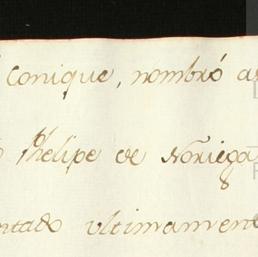 Conique, nombró a
Phelipe de Noriega
ntado ultimamen